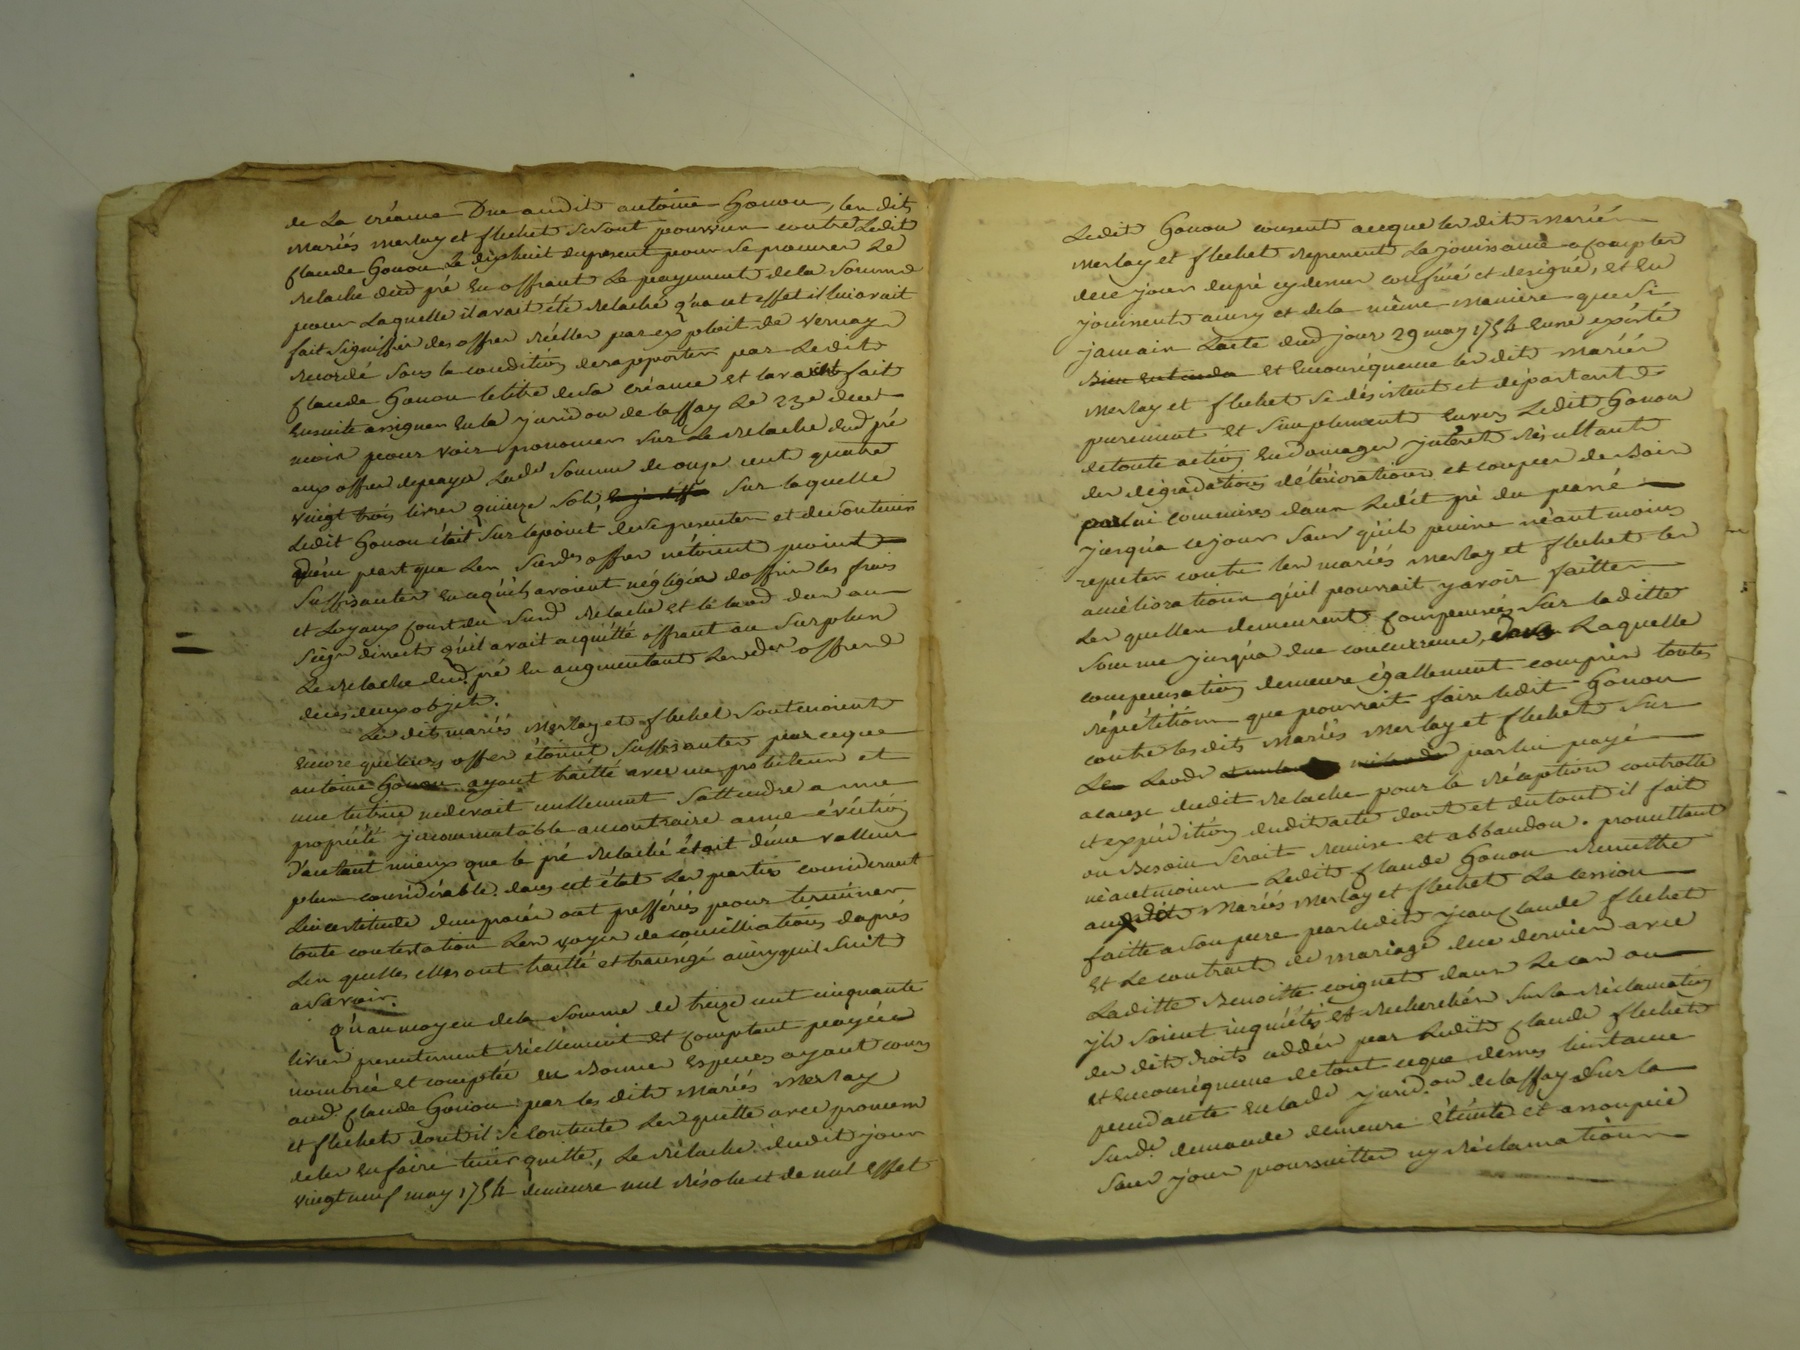 de La créance Due audit antoine Gonon, lesdits
Mariés Merlay et flechet se sont pourvus contre Ledit
Claude Gonon Le dixhuit du present pour se procurer Le
relache dud pré en offrant Le payement de la somme
pour Laquelle il avait été relaché qu'a cet effet il lui avait
fait signiffier des offres réelles par exploit de vernay
recordé sous la condition de rapporter par Ledit
Claude Gonon le titre de sa créance et lavait fait
ensuite assigner en la juridon de laffay Le 23e du ct
mois pour voir prononcer sur Le relache dud pré
aux offres de payer Lade somme de onze cent quatre
vingt trois livres quinze sols, sur laquelle
Ledit Gonon était sur le point de se presenter et de soutenir
que Les susdes offres n'étoient point
suffisantes en ce qu'ils avoient négligés d'offrir les frais
et Loyaux couts du susd relache et le laod dun au
seigr direct qu'il avait acquitté offrant au surplus
Le relache dud. pré en augmentant Lesdes offres
de ces deux objets.
Lesdits mariés Merlay et flechet soutenoient
encore que leurs offres étoient suffisantes parceque
antoine Gonon ayant traitté avec un protuteur et
une tutrice ne devait nullement s'attendre a une
propriété jncommutable au contraire a une éviction
d'autant mieux que le pré relaché était d'une valleur
plus considérable. dans cet état Les parties considerant
Lincertitude d'un procès ont prefférés pour terminer
toute contestation Les voyes de conciliation d'après
Lesquelles elles ont traitté et transigé ainsy quil suit
asavoir.
Qu'au moyen de la somme de treize cent cinquante
livres presentement réellement et comptant payée
nombrée et comptée en Bonnes Especes ayant cours
aud Claude Gonon par lesdits Mariés Merlay
et flechet dont il se contente Les quitte avec promesse
de les en faire tenir quitte, Le rélache dudit jour
vingt neuf may 1754 demeure nul résolu et de nul effet
Ledit Gonon consent a ce que lesdits Mariés
Merlay et flechet reprenent La jouissance a compter
de ce jour du pré cy dessus confiné et designé, et en
jouissent ainsy et de la même manière que si
jamais Lacte dud jour 29 may 1754 eune existé
bien entendu et en conséquence lesdits Mariés
Merlay et flechet se désistent et départent
purement et simplement envers Ledit Gonon
de toute action en domages jntérets résultants
des dégradations détériorations et coupes de Bois
par lui commises dans Ledit pré du passé
jusqu'a ce jour sans qu'il puisse néantmoins
repeter contre les mariés Merlay et flechet les
améliorations qu'il pourrait y avoir faittes
Lesquelles demeurent compensées sur laditte
somme jusqu'a due concurrence, Laquelle
compensation demeure égallement compris toutes
répétitions que pourrait faire ledit Gonon
contre lesdits Mariés Merlay et flechet sur
Le Laods par lui payé
a cause dudit relache pour la réception controlle
et expédition dudit acte dont et du tout il fait
ou Besoin serait remise et abbandon. promettant
néantmoins Ledit Claude Gonon remettre
auxdits Mariés Merlay et flechet La cession
faitte a son pere par ledit jean Claude flechet
et Le contrat de mariage de ce dernier avec
Laditte Benoitte coignet dans Le cas ou
jls soient inquiétés et recherchés sur la réclamation
desdits droits cédés par Ledit Claude flechet
et en conséquence de tout ce que dessus linstance
pendante en lade jurid.on de laffay sur la
susde. demande demeure éteinte et assoupie
sans jour poursuittes ny réclamations